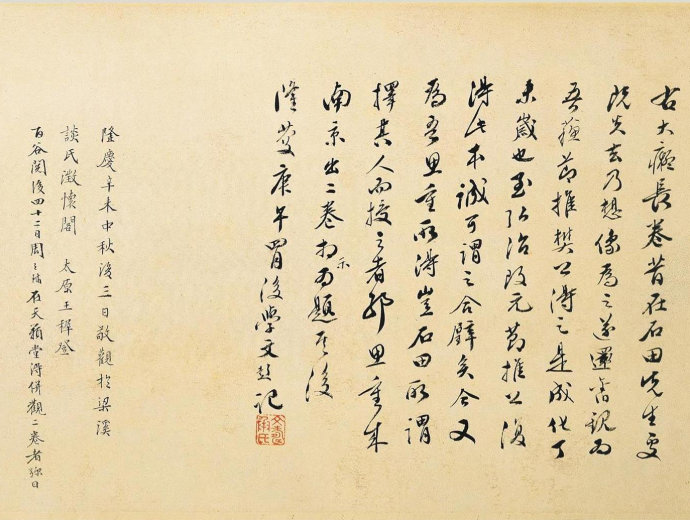 右大癡長卷昔在石田先生處
既失去乃想像為之遂還舊觀為
吾蘇節推樊公得之是成化丁
未歲也至弘治改元節推公復
得此本誠可謂之合璧矣今又
為吾思重所得豈石田所謂
擇其人而授之者耶思重來
南京出二卷相示為題其後
隆慶庚午冒後學文彭記
隆慶辛未中秋後三日敬觀於梁溪
談氏澂懷閣 太原王穉登
百谷閱後四十二日周之
在天籟堂得併觀二卷者弥日